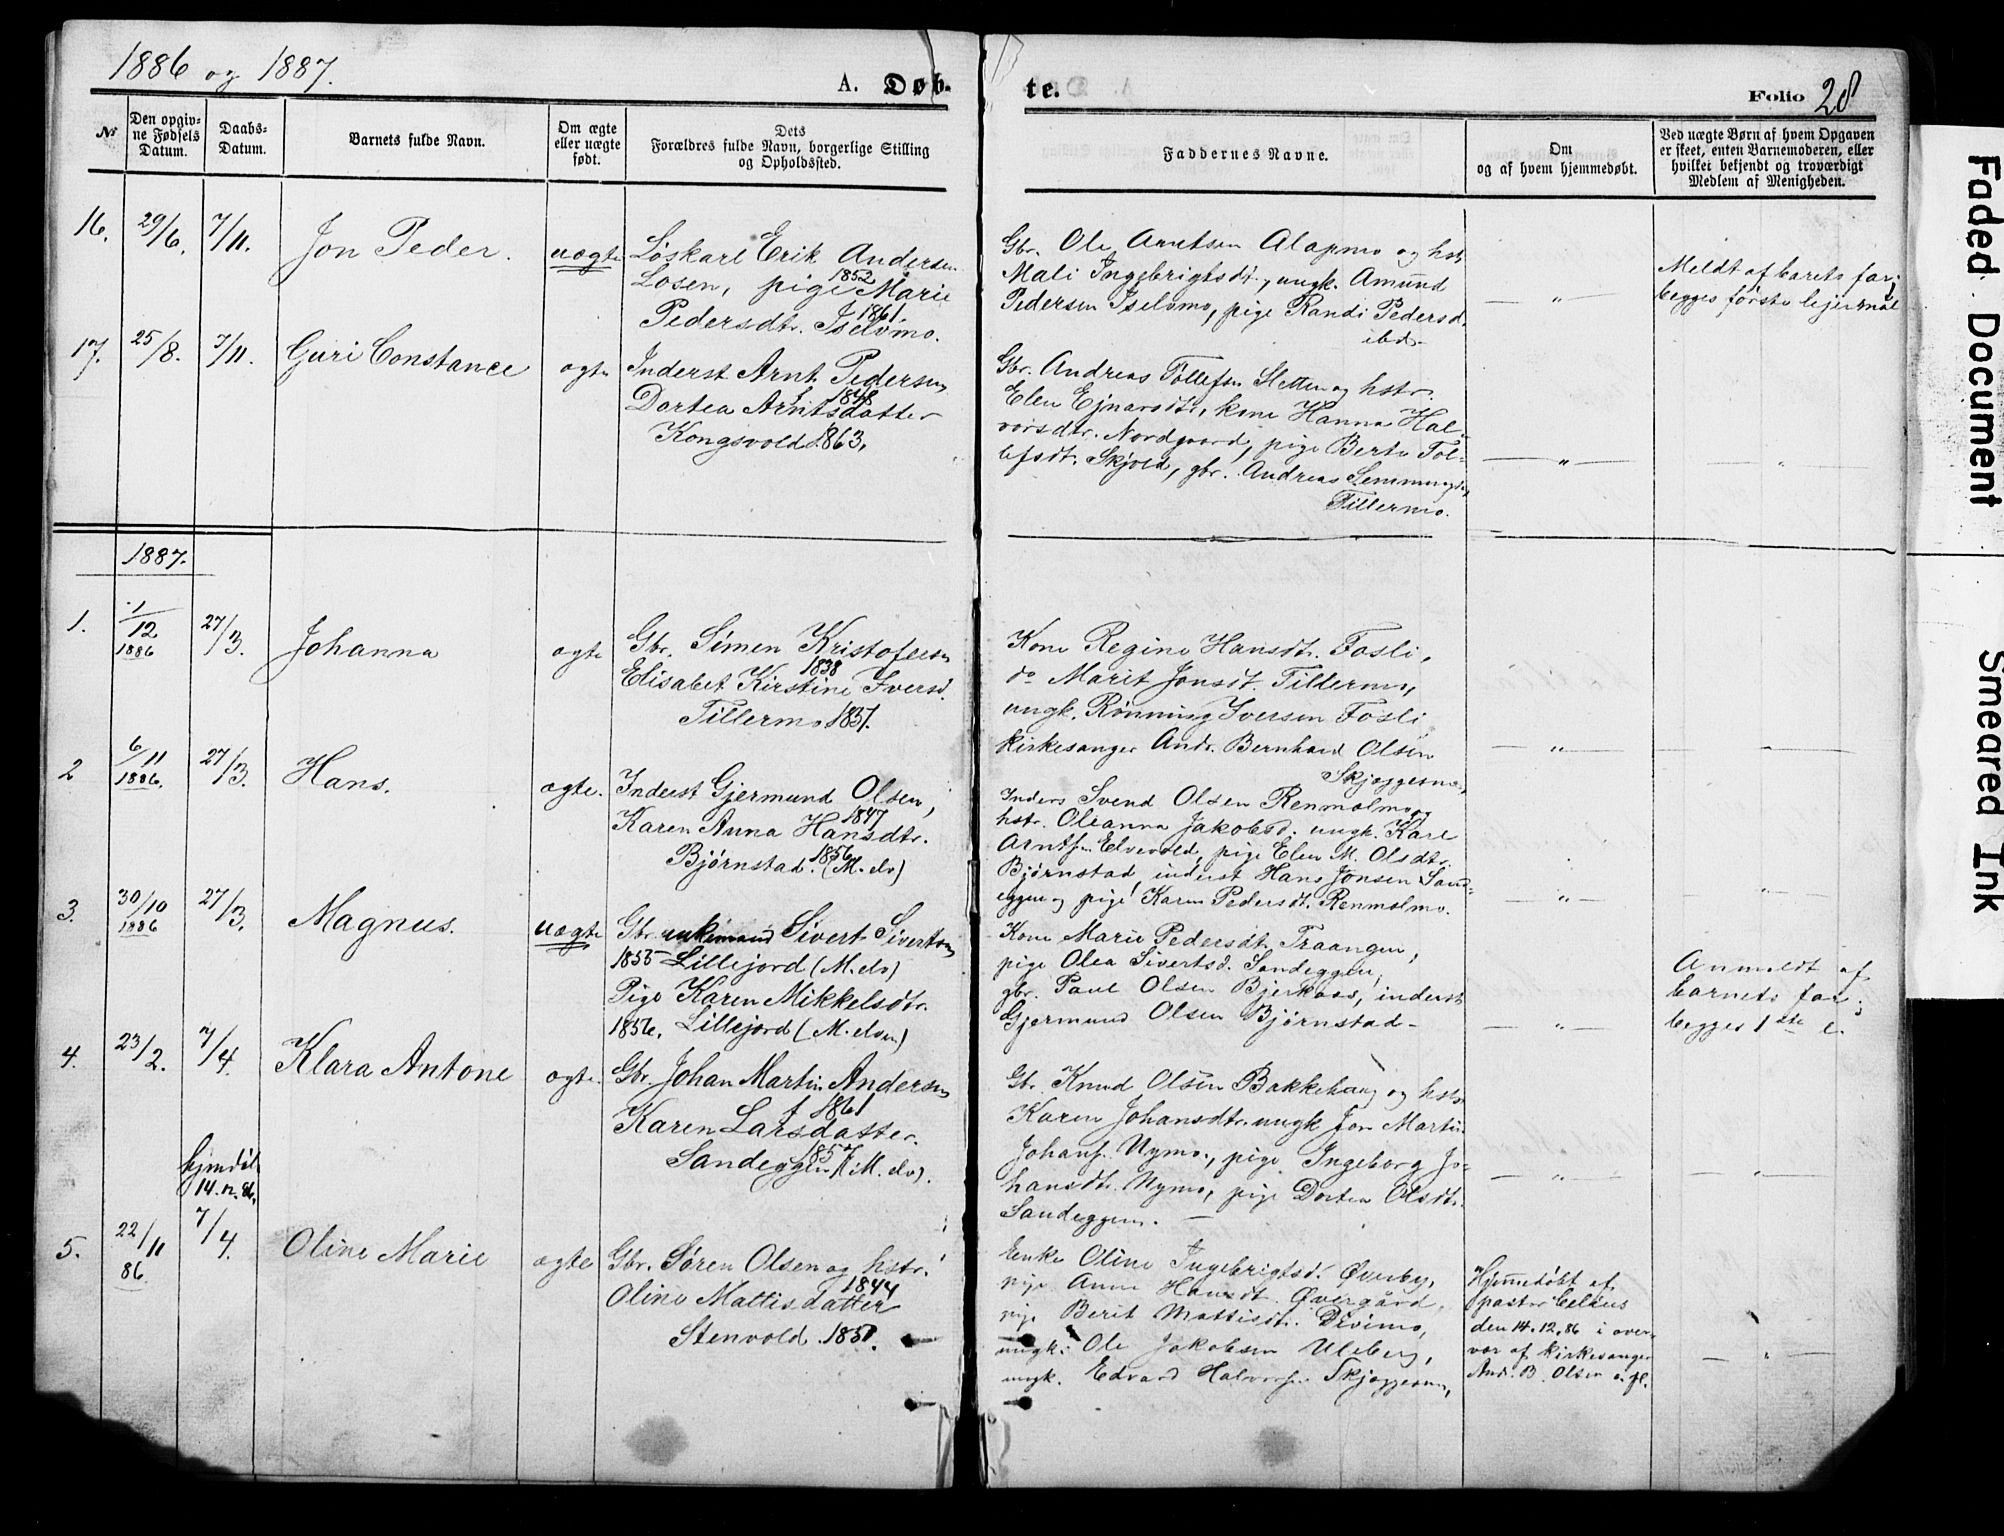 1886 og 1887.
A. Døb-
te.
Folio 28
No
Den opgiv-
ne Fødsels
Datum.
Daabs-
Datum.
Barnets fulde Navn.
Om ægte
eller uægte
født.
Dets
Forældres fulde Navn, borgerlige Stilling
og Opholdssted.
Faddernes Navne.
Om
og af hvem hjemmedøbt.
Ved uægte Børn af hvem Opgaven
er skeet, enten Barnemoderen, eller
hvilket bekjendt og troværdigt
Medlem af Menigheden.
16. 29/6. 7/11. Jon Peder. uægte
Løskarl Erik Andersen
Losen, 1852 pige Marie
Pedersdtr. Iselvmo. 1861.
Gbr. Ole Arntsen Alapmo og hstr
Mali Ingebrigtsdt., ungk. Amund
Pedersen Iselvmo, pige Randi Pedersd.
ibd.
— " —
Meldt af barets far;
begges første lejermål
17. 25/8. 7/11. Guri Constance ægte
Inderst Arnt Pedersen
1848
Dortea Arntsdatter
Kongsvold 1863.
Gbr. Andreas Tollefsn Sletten og hstr.
Elen Ejnarsdtr, kone Hanna Hal-
vorsdtr. Nordgaard, pige Berte Tol-
lefsdt. Skjold, gbr. Andreas Semmingsen
Tillermo.
— " —
— " —
1887.
1. 1/12 1886 27/3. Johanna ægte
Gbr. Simen Kristofersen
1838
Elisabet Kirstine Iversd.
Tillermo 1837.
Kone Regine Hansdt. Fosli,
do Marit Jonsdt. Tillermo,
ungk. Rønning Iversen Fosli
kirkesanger Andr. Bernhard Olsen
Skjæggesnes,
— " —
2 6/11 1886. 27/3. Hans. ægte.
Inderst Gjermund Olsen,
1847
Karen Anna Hansdtr.
Bjørnstad. 1856 (M. elv)
Inders Svend Olsen Renmolmo og
hstr. Oleanna Jakobsd. ungk. Karl
Arntsn Elvevold, pige Elen M. Olsdtr.
Bjørnstad, inderst Hans Jonsen Sand-
eggen og pige Karen Pedersdt. Renmolmo.
— " —
— " —
3. 30/10 1886 27/3. Magnus. uægte
Gbr. enkemand Sivert Sivertsen
1855 Lillejord (M. elv)
Pige Karen Mikkelsdtr.
1856. Lillejord (M. elven)
Kone Marie Pedersdt. Traangen,
pige Olea Sivertsd. Sandeggen,
gbr. Paul Olsen Bjerkaas, inderst
Gjermund Olsen Bjørnstad -
— " —
Anmeldt af
barnets far;
begges 1ste l.
4. 23/2. 7/4. Klara Antone ægte.
Gbr. Johan Martin Andersen
1861
Karen Larsdatter.
1857
Sandeggen (M. elv).
Gbr. Knud Olsen Bakkehaug og hstr
Karen Johansdtr. ungk Jon Martin
Johansn Nymo, pige Ingeborg Jo-
hansdtr. Nymo, pige Dortea Olsdtr.
Sandeggen. —
— " —
— " —
hjemdøbt
14. 12. 86.
5. 22/11 86. 7/4. Oline Marie ægte
Gbr. Søren Olsen og hstr.
1844
Oline Mattisdatter
Stenvold 1851.
Enke Oline Ingebrigtsd. Øverby,
pige Anne Hansdt. Øvergård,
pige Berit Mattisdt. Divimo,
ungk. Ole Jakobsen Uleberg,
ungk. Edvard Halvorsn Skjæggesnes,
Hjemmedøbt af
pastor Celius
den 14.12.86 i over-
vær af kirkesanger
And. B. Olsen o. fl.
— " —
Faded Document
Smeared Ink